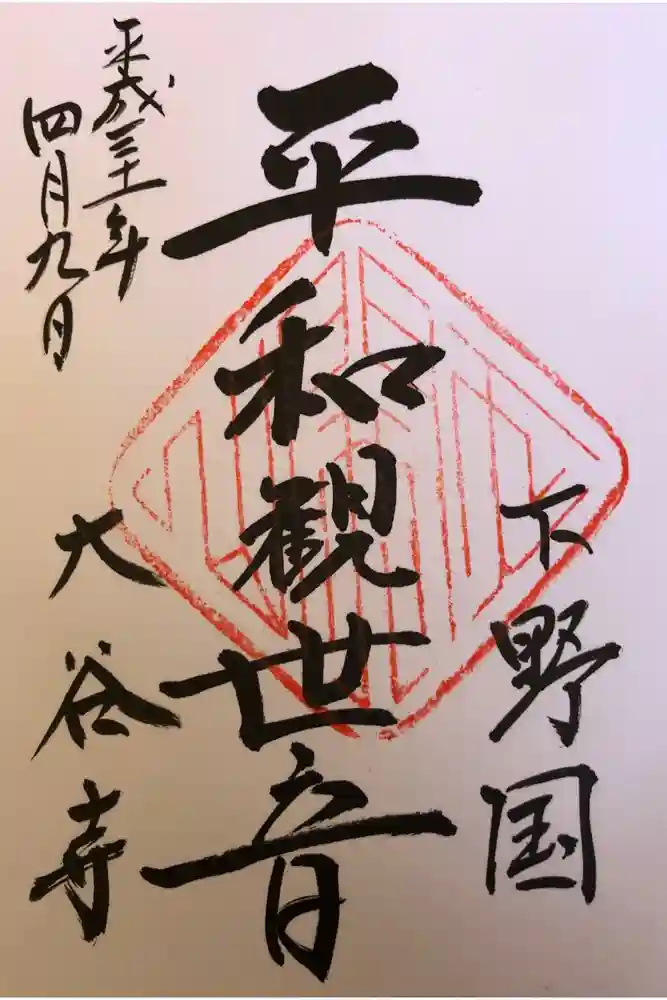 下野国
平和観世音
大谷寺
平成三十一年
四月九日